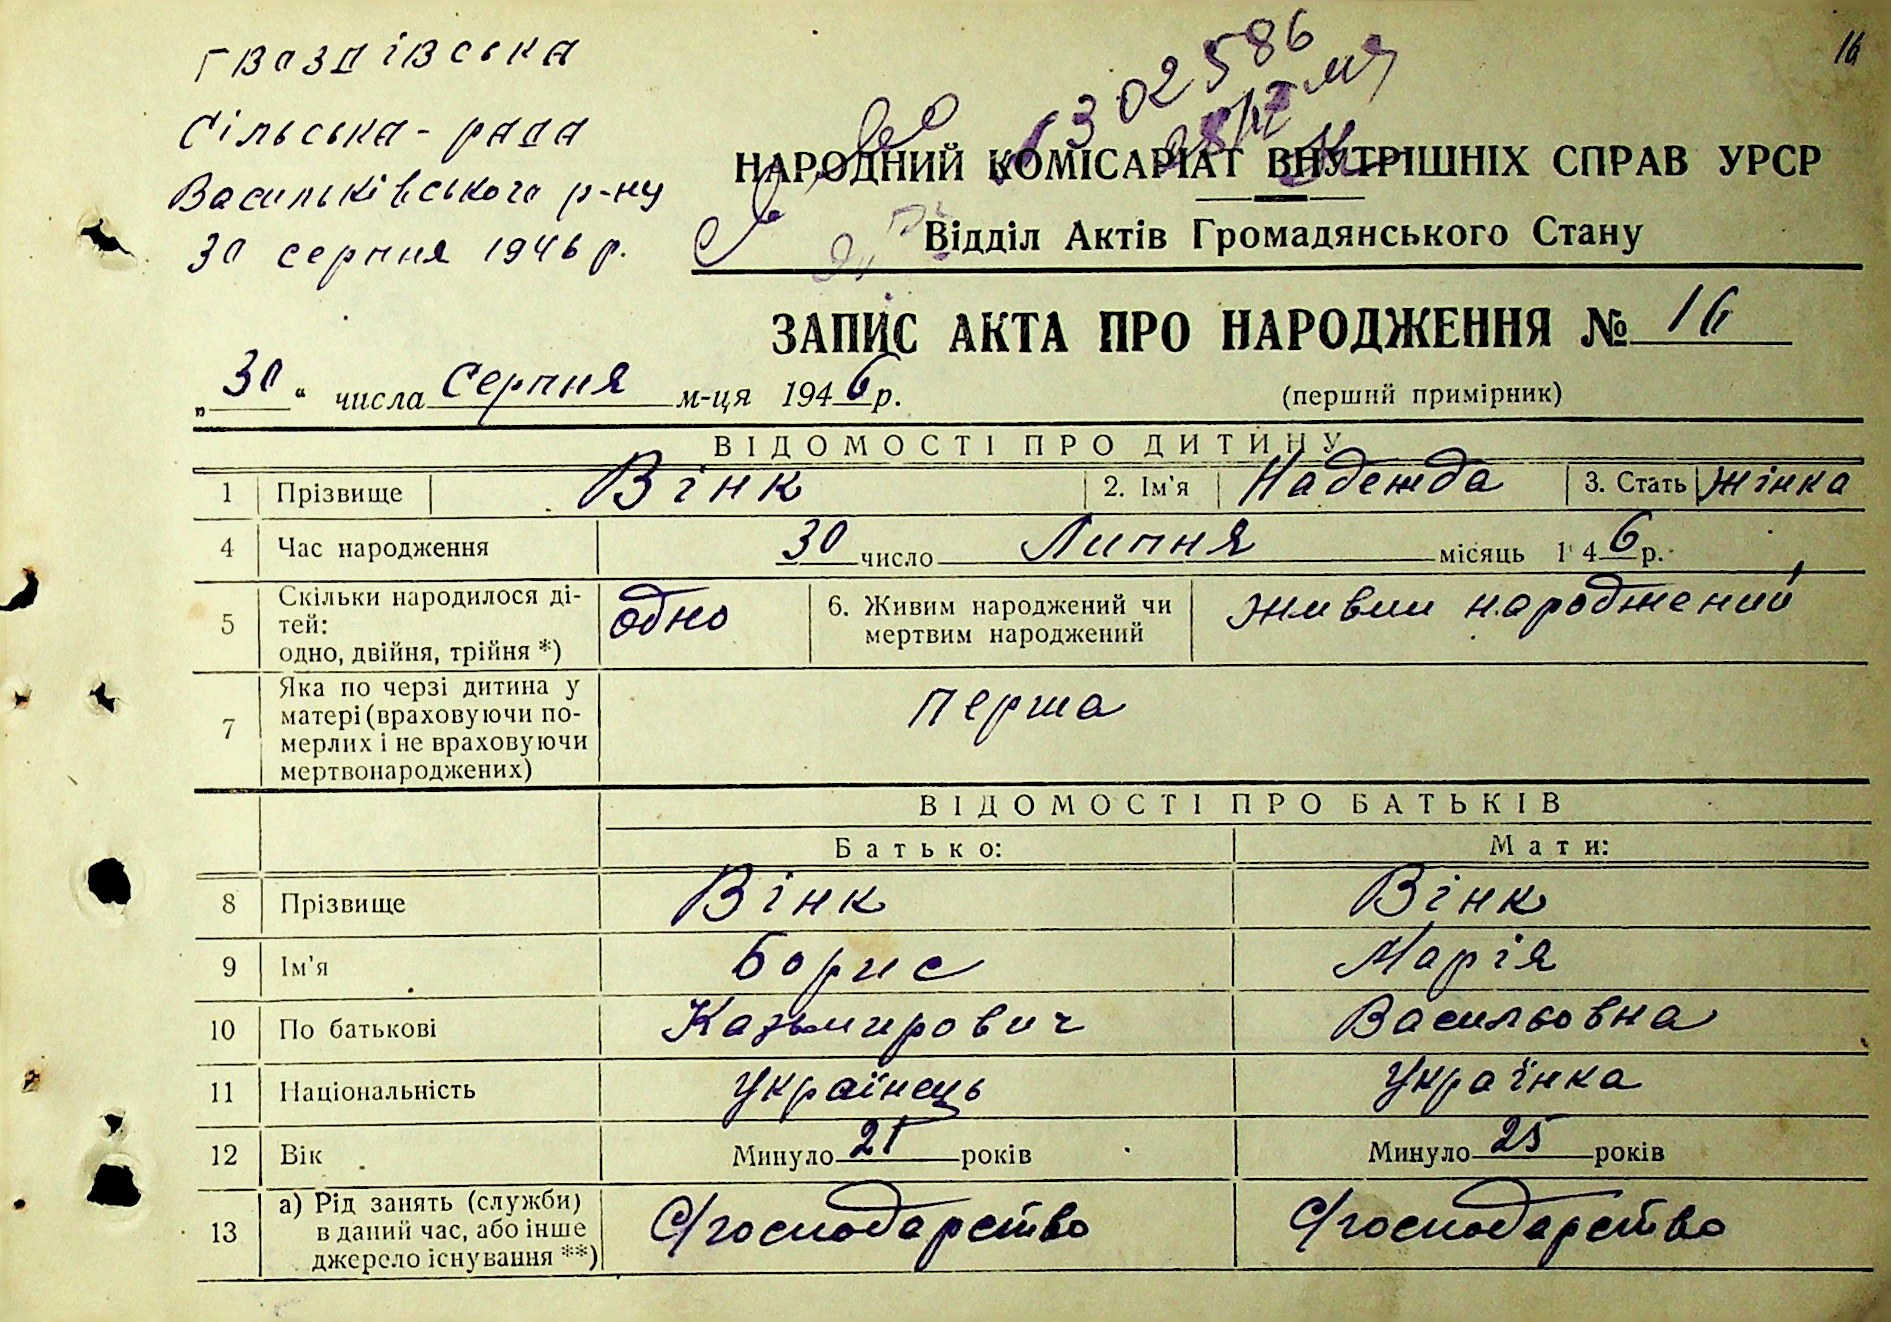 Гвоздівська
Сільська-рада
Васильківського р-ну
30 серпня 1946 р.
16
1302586
НАРОДНИЙ КОМІСАРІАТ ВНУТРІШНІХ СПРАВ УРСР
Відділ Актів Громадянського Стану
ЗАПИС АКТА ПРО НАРОДЖЕННЯ № 16
„30“ числа Серпня м-ця 1946 р.
(перший примірник)
ВІДОМОСТІ ПРО ДИТИНУ
1 Прізвище Вінк 2. Ім'я Надежда 3. Стать жінка
4 Час народження 30 число Липня місяць 1 46 р.
5 Скільки народилося ді-
тей:
одно, двійня, трійня *) одно 6. Живим народжений чи
мертвим народжений живим народжений
7 Яка по черзі дитина у
матері (враховуючи по-
мерлих і не враховуючи
мертвонароджених) перша
ВІДОМОСТІ ПРО БАТЬКІВ
Батько: Мати:
8 Прізвище Вінк Вінк
9 Ім'я Борис Марія
10 По батькові Казьмирович Васильовна
11 Національність Українець Українка
12 Вік Минуло 21 років Минуло 25 років
13 а) Рід занять (служби)
в даний час, або інше
джерело існування **) С/господарство С/господарство